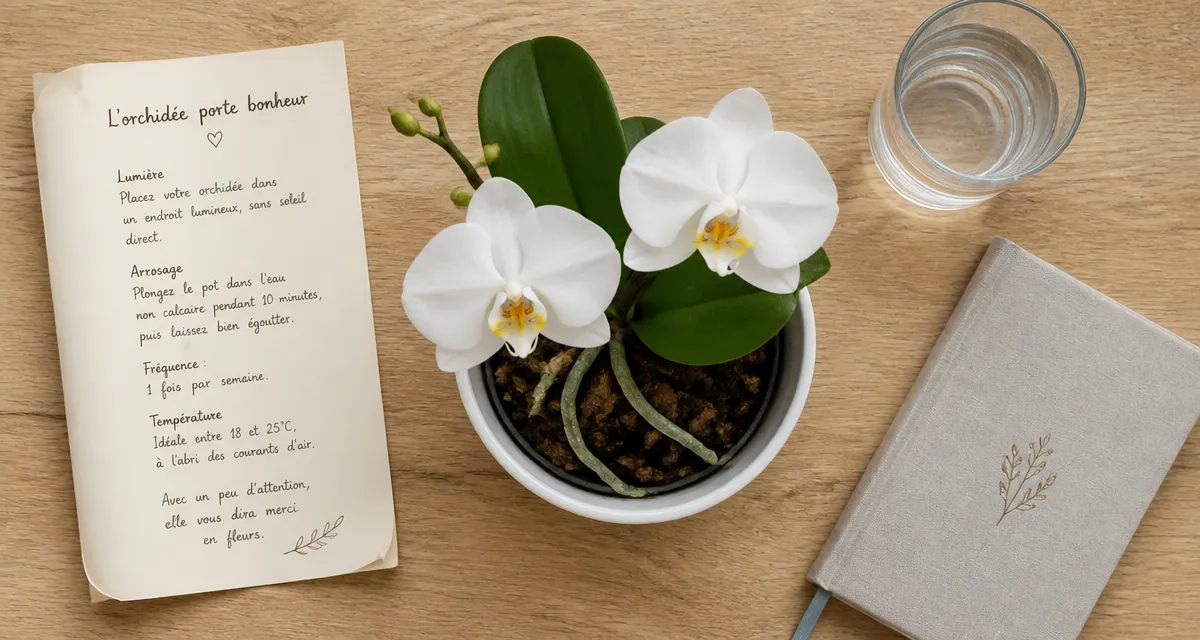 L'orchidée porte bonheur
Lumière
Placez votre orchidée dans
un endroit lumineux, sans soleil
direct.
Arrosage
Plongez le pot dans l'eau
non calcaire pendant 10 minutes,
puis laissez bien égoutter.
Fréquence :
1 fois par semaine.
Température
Idéale entre 18 et 25°C,
à l'abri des courants d'air.
Avec un peu d'attention,
elle vous dira merci
en fleurs.